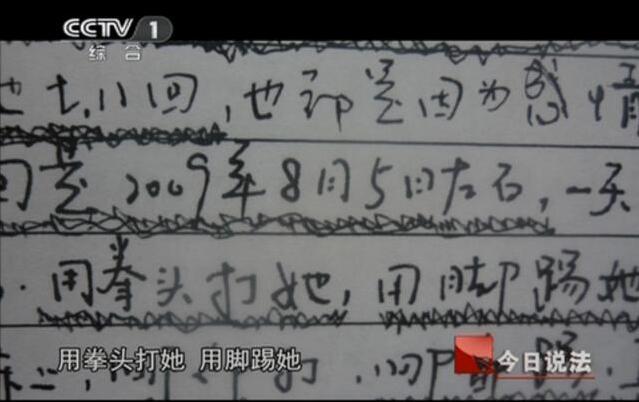 CCTV 1
综合
七,八回,也都是因为感情
回是2009年8月5日左右,一天
用拳头打她,用脚踢她
用拳头打她 用脚踢她
今日说法